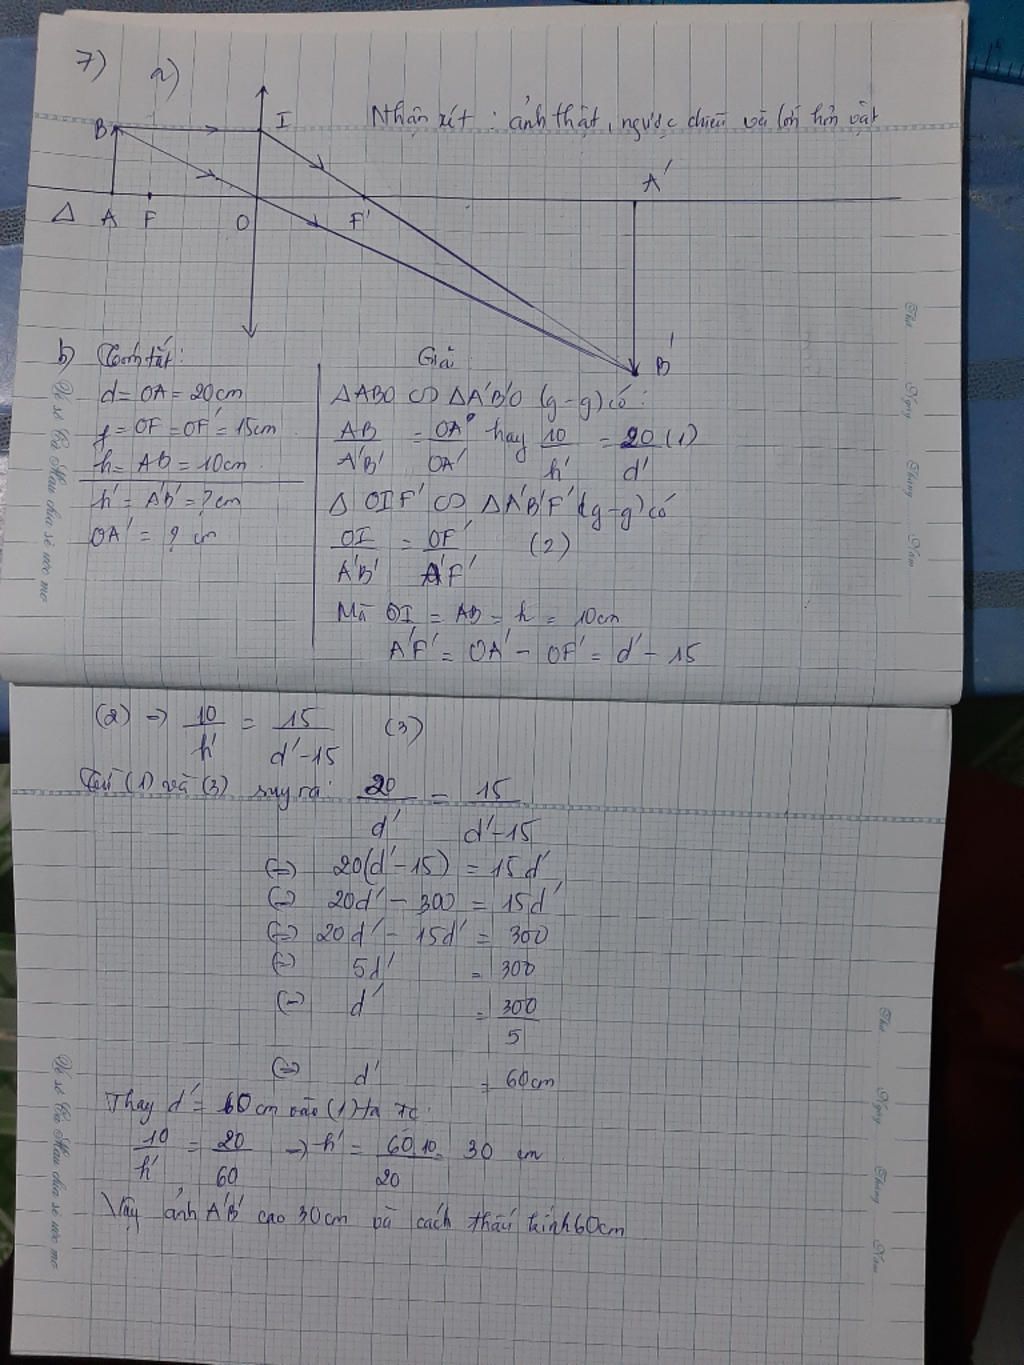 7)
a)
Nhận xét : ảnh thật, ngược chiều và lớn hơn vật
B I
A'
Δ A F O F'
B'
b) Tóm tắt:
d = OA = 20cm
f = OF = OF' = 15cm
h = AB = 10cm
h' = A'B' = ? cm
OA' = ? cm
Giải
ΔABO ∽ ΔA'B'O (g-g) có:
AB/A'B' = OA/OA' hay 10/h' = 20/d' (1)
Δ OIF' ∽ ΔA'B'F' (g-g) có
OI/A'B' = OF'/A'F' (2)
Mà OI = AB = h = 10cm
A'F' = OA' - OF' = d' - 15
Thứ
Ngày
Tháng
Năm
(2) → 10/h' = 15/d'-15 (3)
Từ (1) và (3) suy ra: 20/d' = 15/d'-15
(=) 20(d'-15) = 15d'
(=) 20d' - 300 = 15d'
(=) 20d' - 15d' = 300
(=) 5d' = 300
(=) d' = 300/5
(=) d' = 60cm
Thay d' = 60cm vào (1) ta
10/h' = 20/60 → h' = 60.10/20 = 30 cm
Vậy ảnh A'B' cao 30cm và cách thấu kính 60cm
Thứ
Ngày
Tháng
Năm